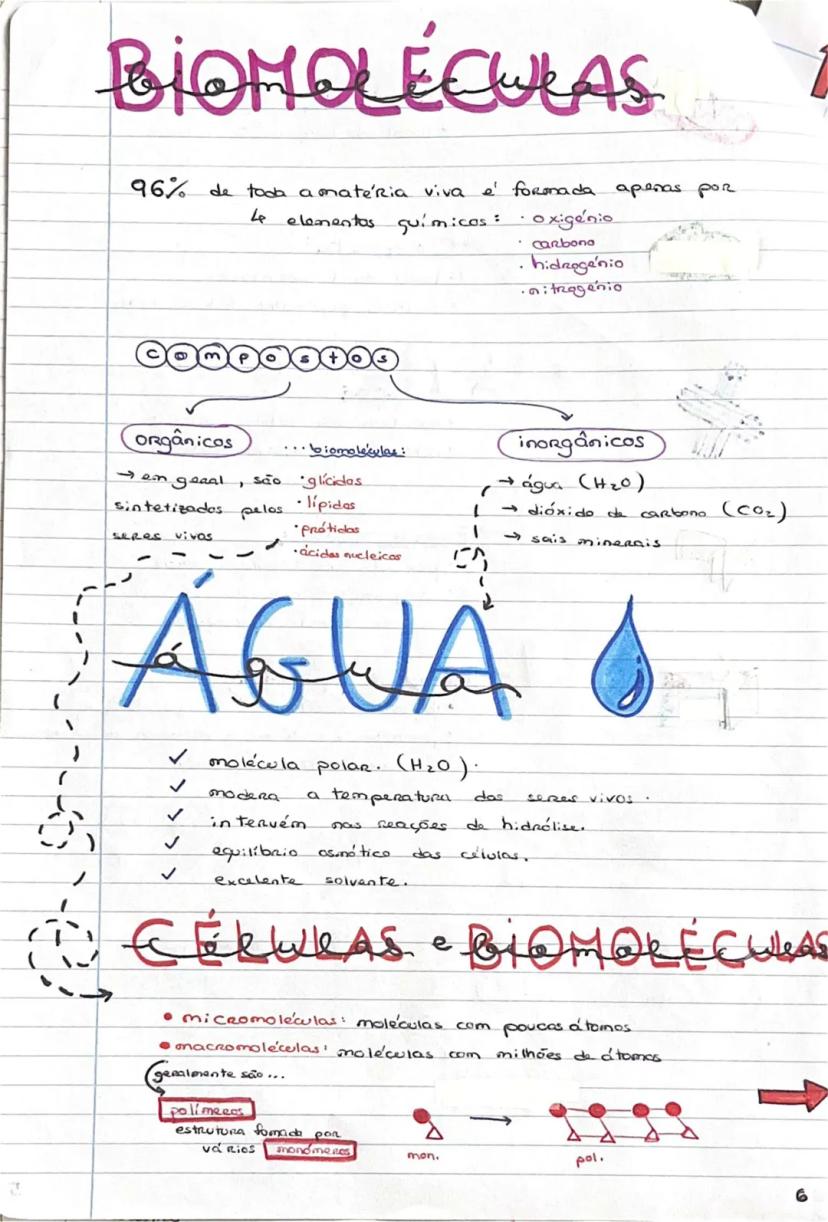 BIOMOLÉCULAS
biomoléculas
96% de toda a matéria viva é formada apenas por
4 elementos químicos: · oxigénio
· carbono
· hidrogénio
· nitrogénio
compostos
orgânicos
→ em geral, são
sintetizados pelos
seres vivos
... biomoléculas:
· glícidos
· lípidos
· prótidos
· ácidos nucleicos
inorgânicos
→ água (H₂O)
→ dióxido de carbono (CO₂)
→ sais minerais
ÁGUA
água
✓ molécula polar. (H₂O).
✓ modera a temperatura dos seres vivos.
✓ intervém nas reações de hidrólise.
✓ equilíbrio osmótico das células.
✓ excelente solvente.
CÉLULAS e BIOMOLÉCULAS
células biomoléculas
• micromoléculas: moléculas com poucos átomos
• macromoléculas: moléculas com milhões de átomos
geralmente são...
polímeros
estrutura fomada por
vários monómeros
mon.
pol.
6